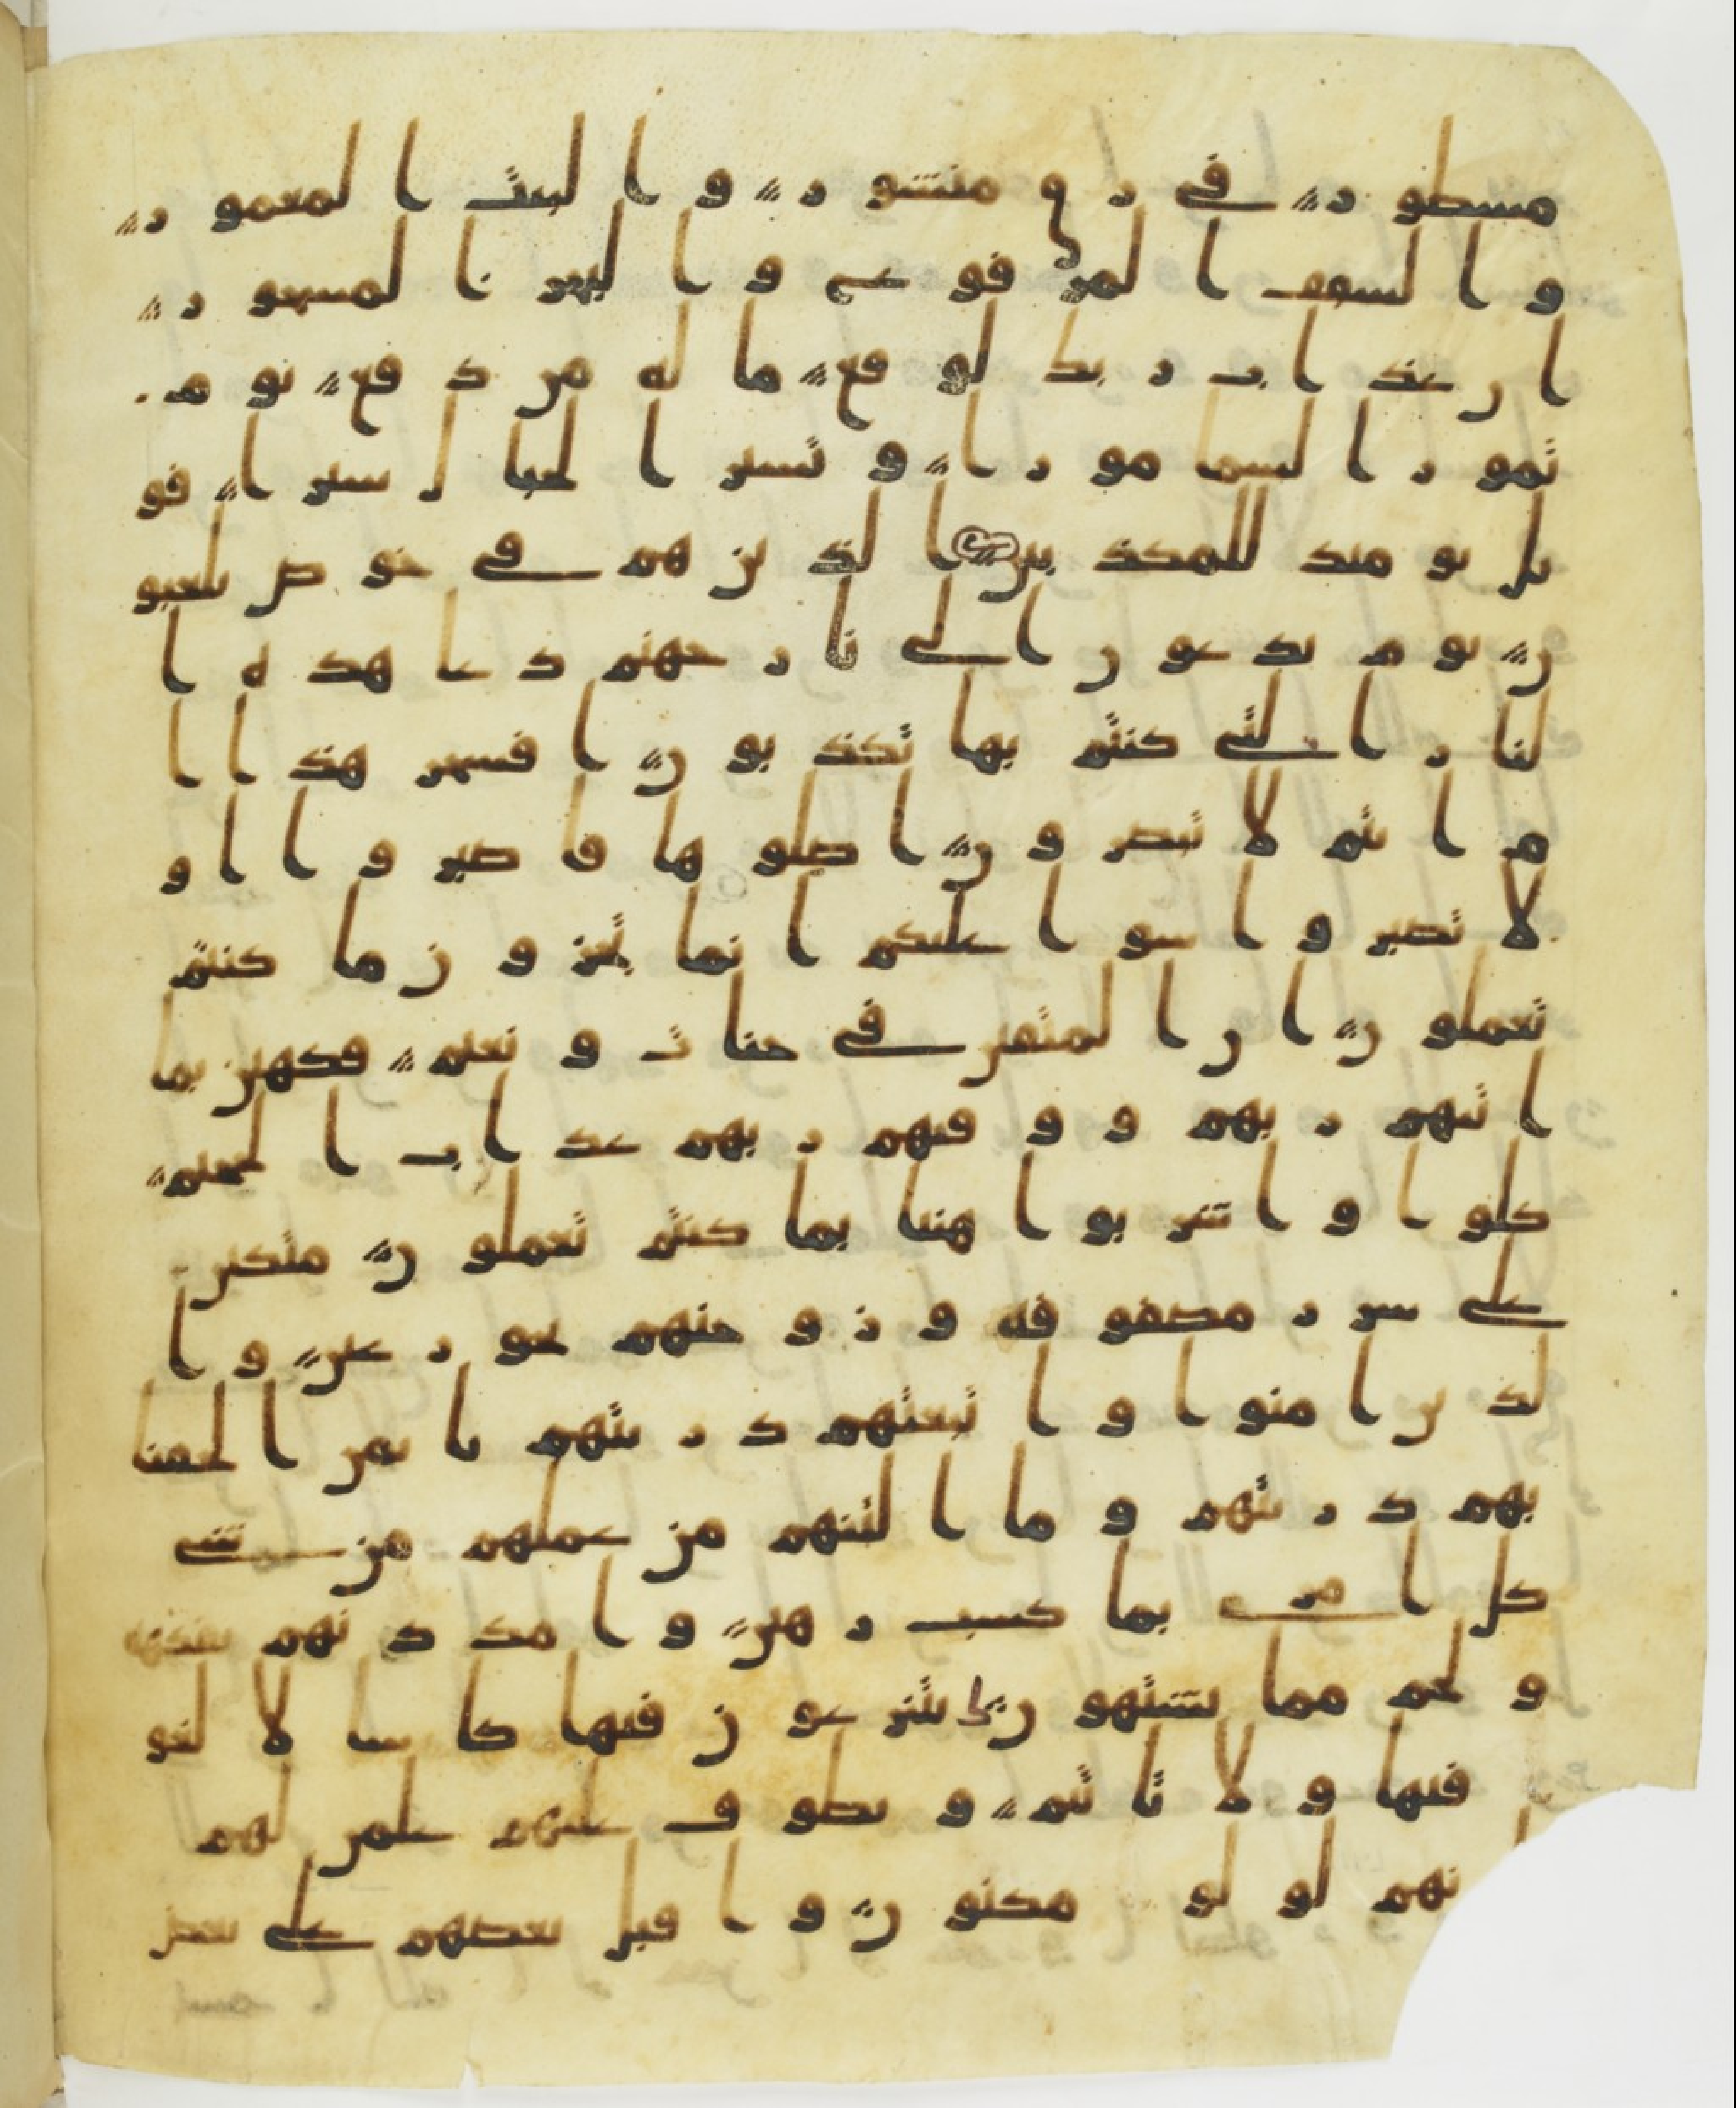 مسطور في رق منشور والبيت المعمور
والسقف المرفوع والبحر المسجور
ان عذاب ربك لوقع ما له من دفع يوم
تمور السما مورا وتسير الجبال سيرا فو
يل يومئذ للمكذبين الذين هم في خوض يلعبو
ن يوم يدعون الى نار جهنم دعا هذه ا
لنار التي كنتم بها تكذبون افسحر هذا ا
م انتم لا تبصرون اصلوها فاصبروا او
لا تصبروا سوا عليكم انما تجزون ما كنتم
تعملون ان المتقين في جنات ونعيم فكهين بما
اتيهم ربهم ووقيهم ربهم عذاب الجحيم
كلوا واشربوا هنيا بما كنتم تعملون متكين
على سرر مصفوفه وزوجنهم بحور عين وا
لذين امنوا واتبعتهم ذريتهم بايمن الحقنا
بهم ذريتهم وما التنهم من عملهم من شي
كل امرى بما كسب رهين وامددنهم بفكهه
ولحم مما يشتهون يتنزعون فيها كاسا لا لغو
فيها ولا تاثيم ويطوف عليهم غلمن لهم
نهم لولو مكنون واقبل بعضهم على بعض